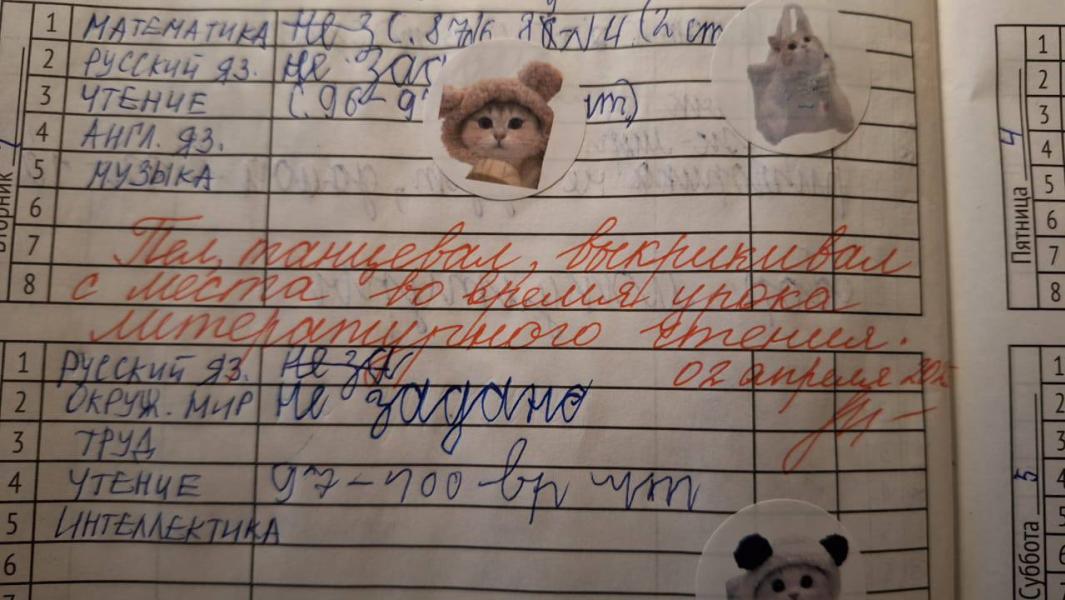 1 МАТЕМАТИКА не з с. 87 № 4 (2 ст
2 РУССКИЙ ЯЗ. не зад
3 ЧТЕНИЕ с. 96-9 чт)
4 АНГЛ. ЯЗ.
5 МУЗЫКА
6
7
8
Пел, танцевал, выкрикивал
с места во время урока
литературного чтения.
02 апреля 202
1 РУССКИЙ ЯЗ. не за
2 ОКРУЖ. МИР не задано
3 ТРУД
4 ЧТЕНИЕ 97-100 вр чт
5 ИНТЕЛЛЕКТИКА
6
7
Вторник 1
Пятница 4
1
2
3
4
5
6
7
8
Суббота 5
1
2
3
4
5
6